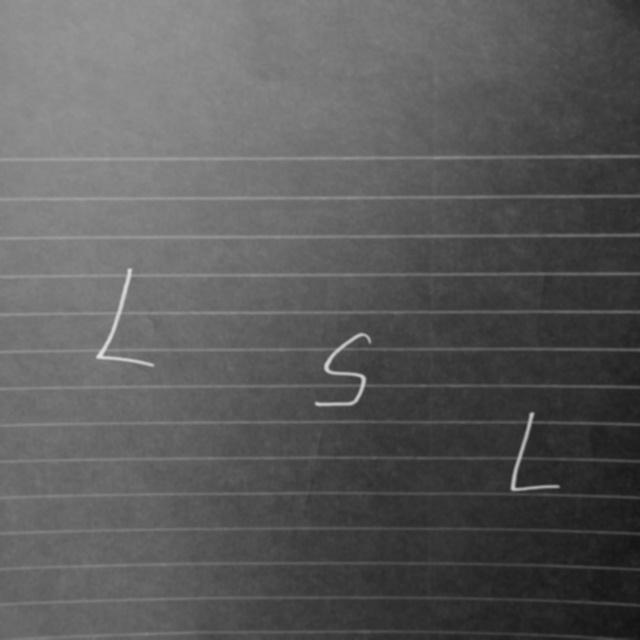 L S L